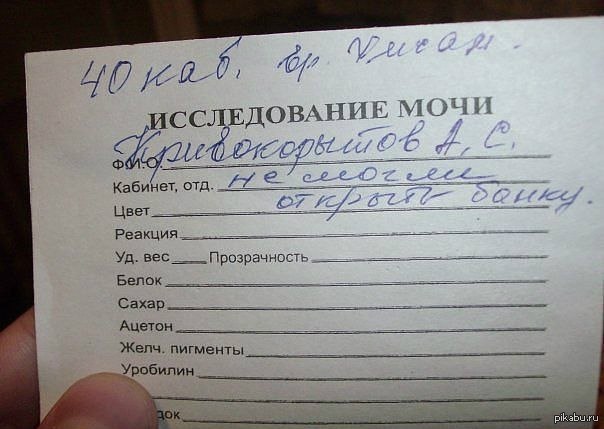 40 каб. вр.
ИССЛЕДОВАНИЕ МОЧИ
Ф.И.О. Кривокорытов А. С.
Кабинет, отд. не могли
открыть банку.
Цвет
Реакция
Уд. вес Прозрачность
Белок
Сахар
Ацетон
Желч. пигменты
Уробилин
док
pikabu.ru